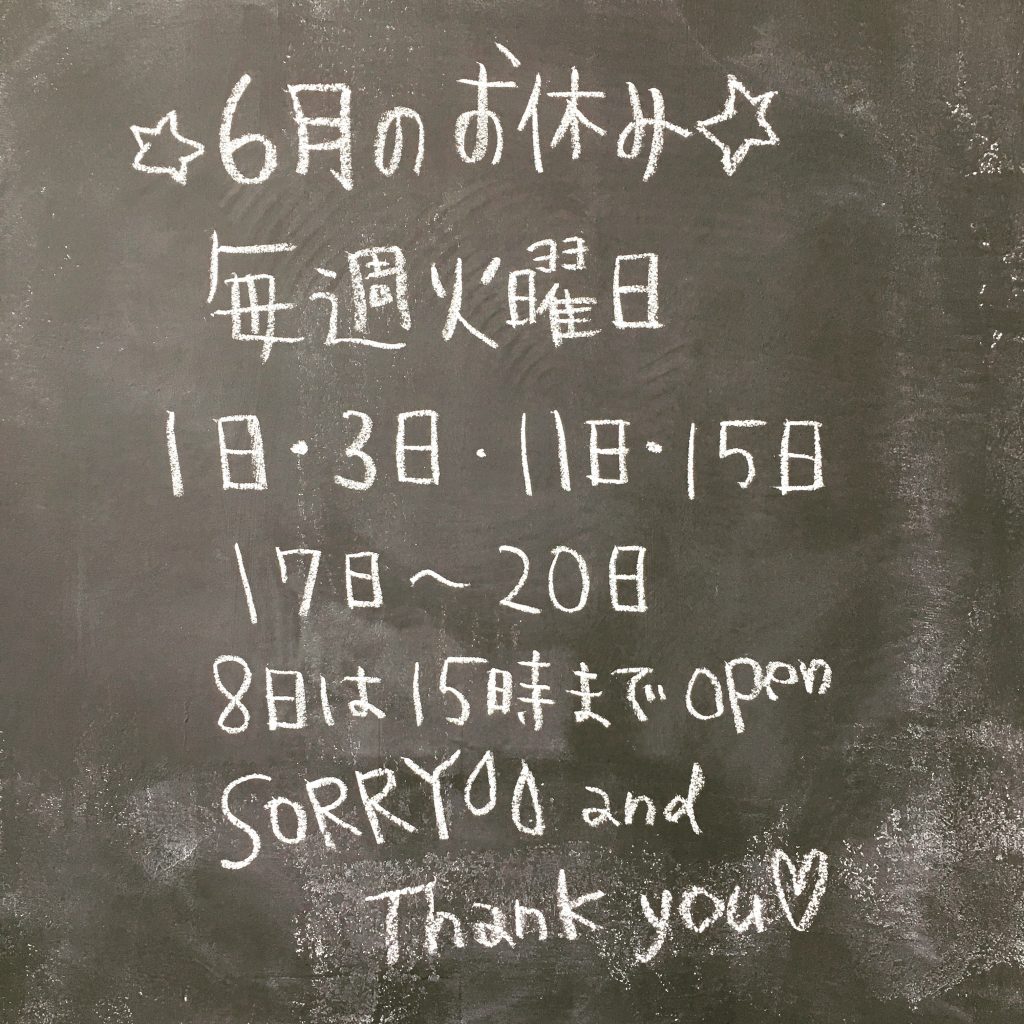 ☆6月のお休み☆
毎週火曜日
1日・3日・11日・15日
17日～20日
8日は15時までopen
SORRY and
Thank you♡